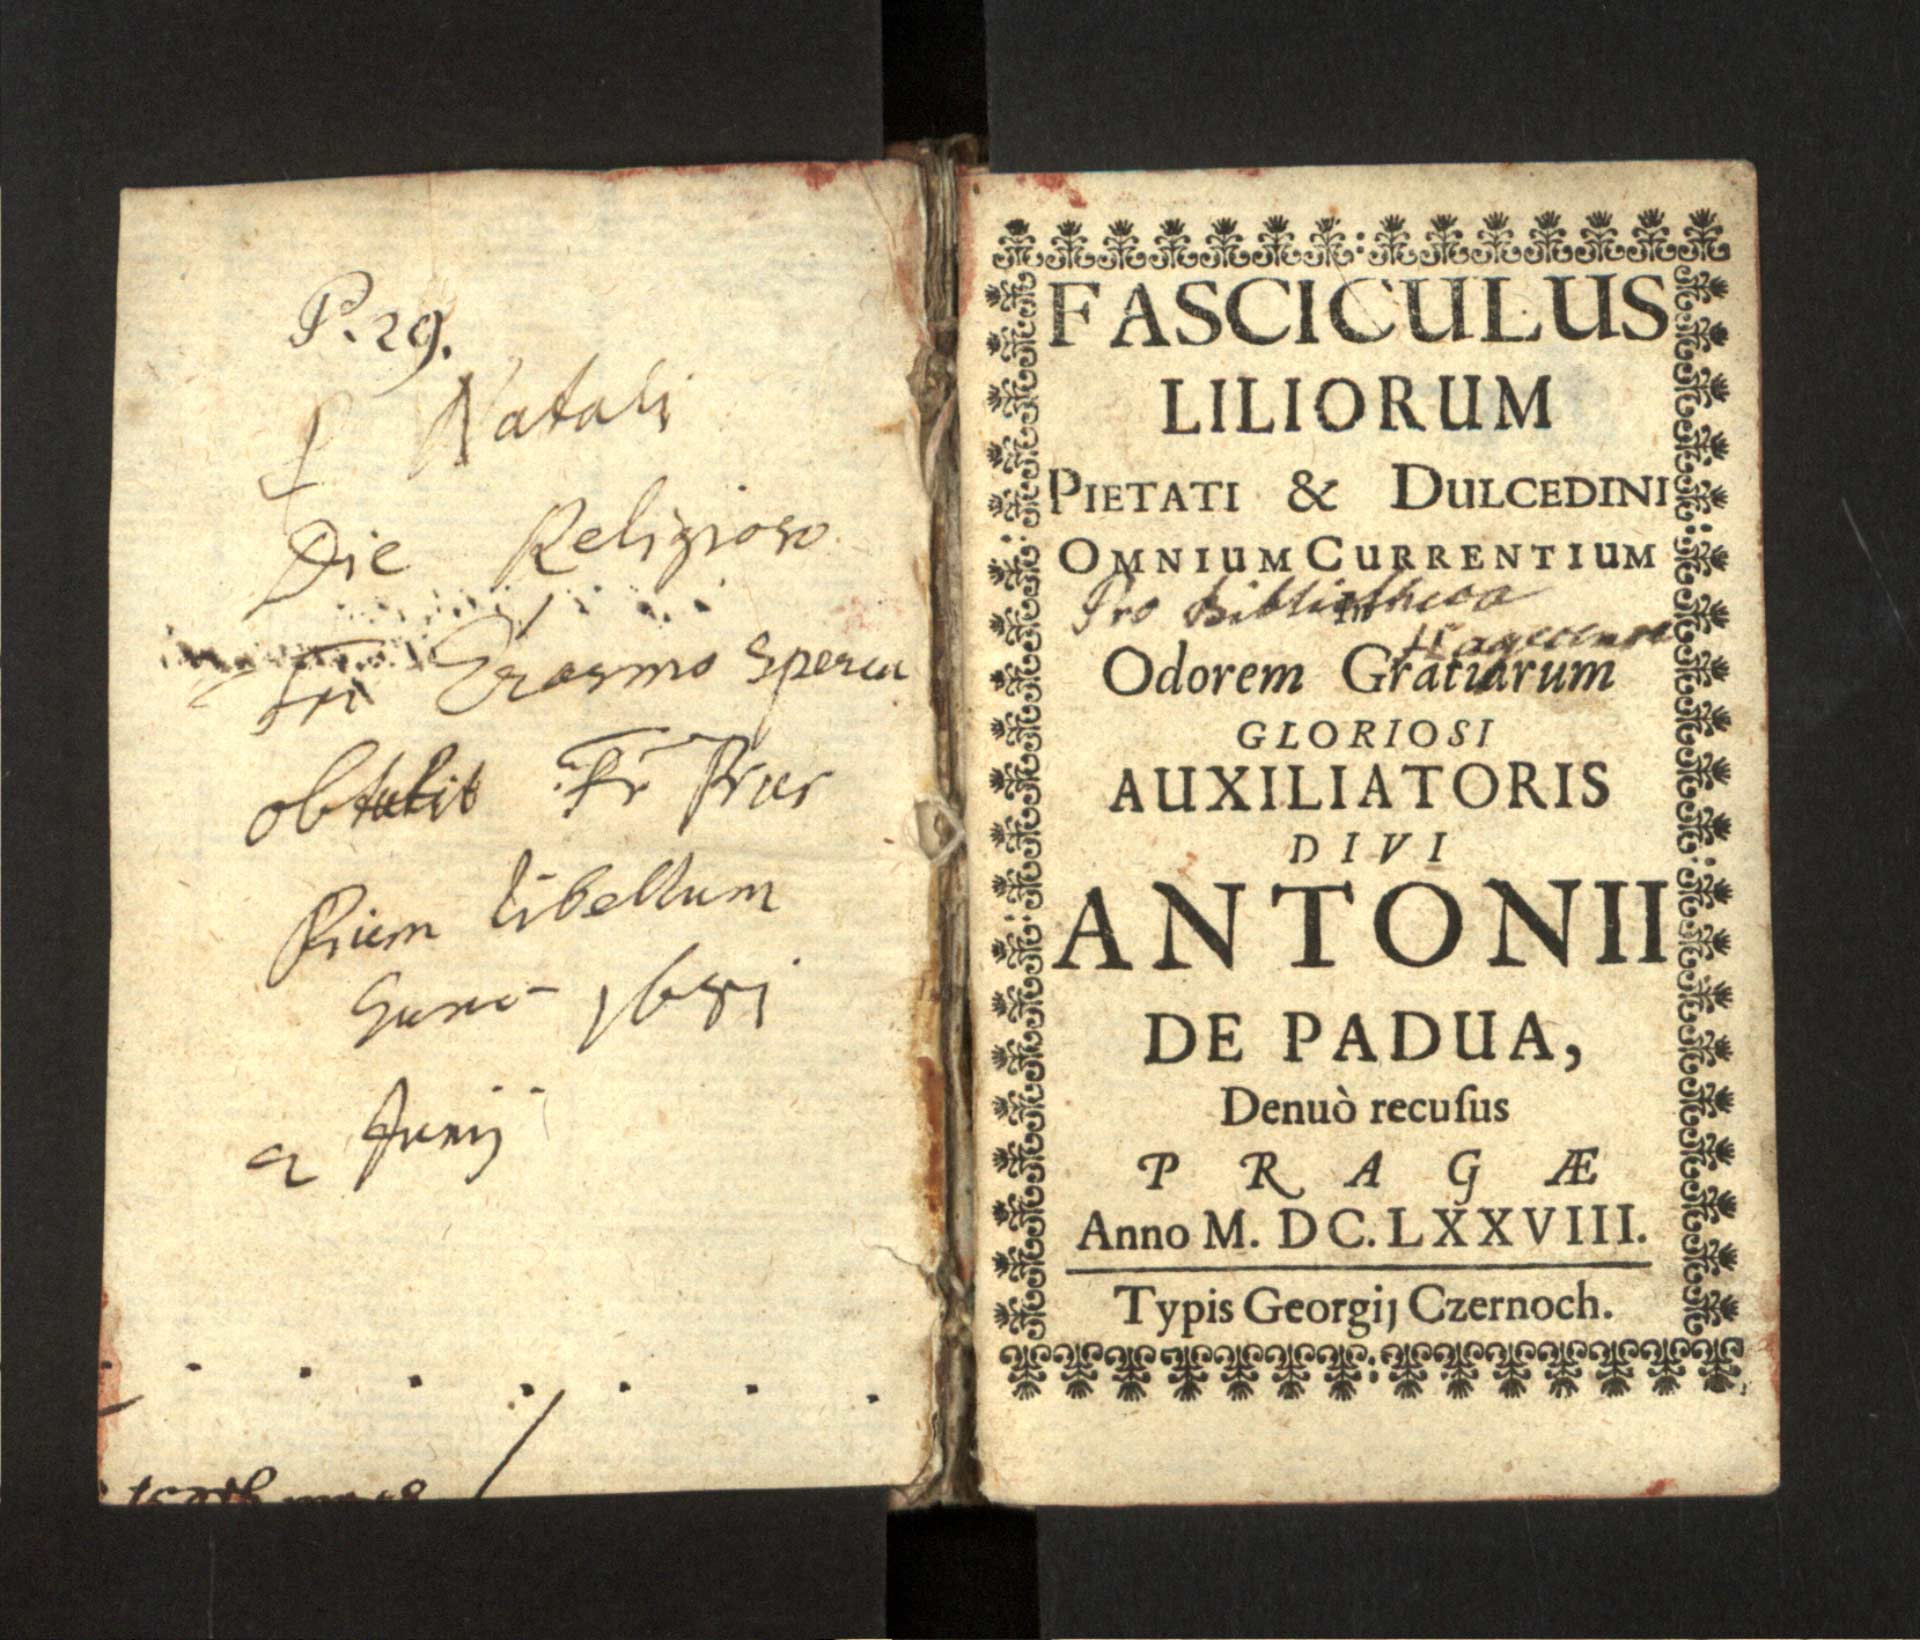 P. 29.
Natali
Die Religioso
Fri Erasmo
obtulit Fr
Piem libellum
2 Junij
FASCICULUS
LILIORUM
PIETATI & DULCEDINI
OMNIUM CURRENTIUM
Pro Bibliotheca
In
Odorem Gratiarum
GLORIOSI
AUXILIATORIS
DIVI
ANTONII
DE PADUA,
Denuò recuſus
PRAGÆ
Anno M. DC. LXXVIII.
Typis Georgij Czernoch.